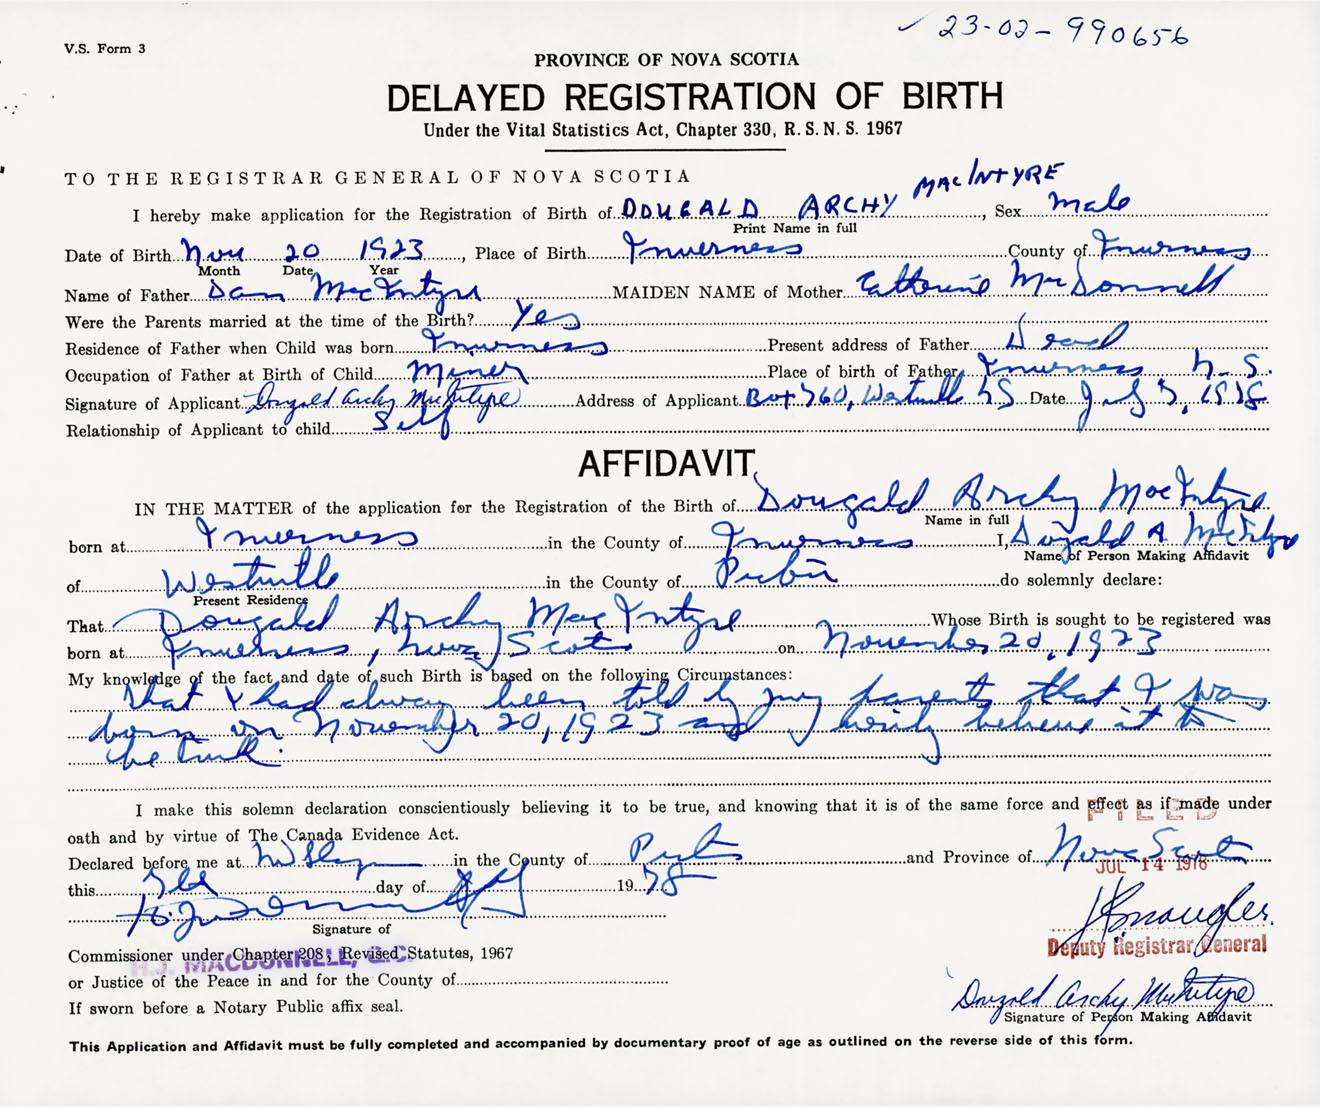 ✓ 23-02-990656
V.S. Form 3
PROVINCE OF NOVA SCOTIA
DELAYED REGISTRATION OF BIRTH
Under the Vital Statistics Act, Chapter 330, R.S.N.S. 1967
TO THE REGISTRAR GENERAL OF NOVA SCOTIA
I hereby make application for the Registration of Birth of DOUGALD ARCHY MACINTYRE, Sex Male
Print Name in full
Date of Birth Nov 20 1923, Place of Birth Inverness County of Inverness
Month Date Year
Name of Father Dan MacIntyre MAIDEN NAME of Mother Catherine MacDonnell
Were the Parents married at the time of the Birth? Yes
Residence of Father when Child was born Inverness Present address of Father Dead
Occupation of Father at Birth of Child Miner Place of birth of Father Inverness N.S.
Signature of Applicant Dougald Archy MacIntyre Address of Applicant Box 760, Westville NS Date July 7, 1978
Relationship of Applicant to child Self
AFFIDAVIT
IN THE MATTER of the application for the Registration of the Birth of Dougald Archy MacIntyre
Name in full
born at Inverness in the County of Inverness I, Dougald A MacIntyre
Name of Person Making Affidavit
of Westville in the County of Pictou do solemnly declare:
Present Residence
That Dougald Archy MacIntyre Whose Birth is sought to be registered was
born at Inverness, Nova Scotia on November 20, 1923
My knowledge of the fact and date of such Birth is based on the following Circumstances:
that I had always been told by my parents that I was
born on November 20, 1923 and I verily believe it to
be true.
I make this solemn declaration conscientiously believing it to be true, and knowing that it is of the same force and effect as if made under
FILED
oath and by virtue of The Canada Evidence Act.
Declared before me at in the County of Pictou and Province of Nova Scotia
JUL 14 1978
this day of July 1978
Signature of
Deputy Registrar General
Commissioner under Chapter 208, Revised Statutes, 1967
H.J. MACDONNELL, Q.C.
or Justice of the Peace in and for the County of
If sworn before a Notary Public affix seal.
Dougald Archy MacIntyre
Signature of Person Making Affidavit
This Application and Affidavit must be fully completed and accompanied by documentary proof of age as outlined on the reverse side of this form.